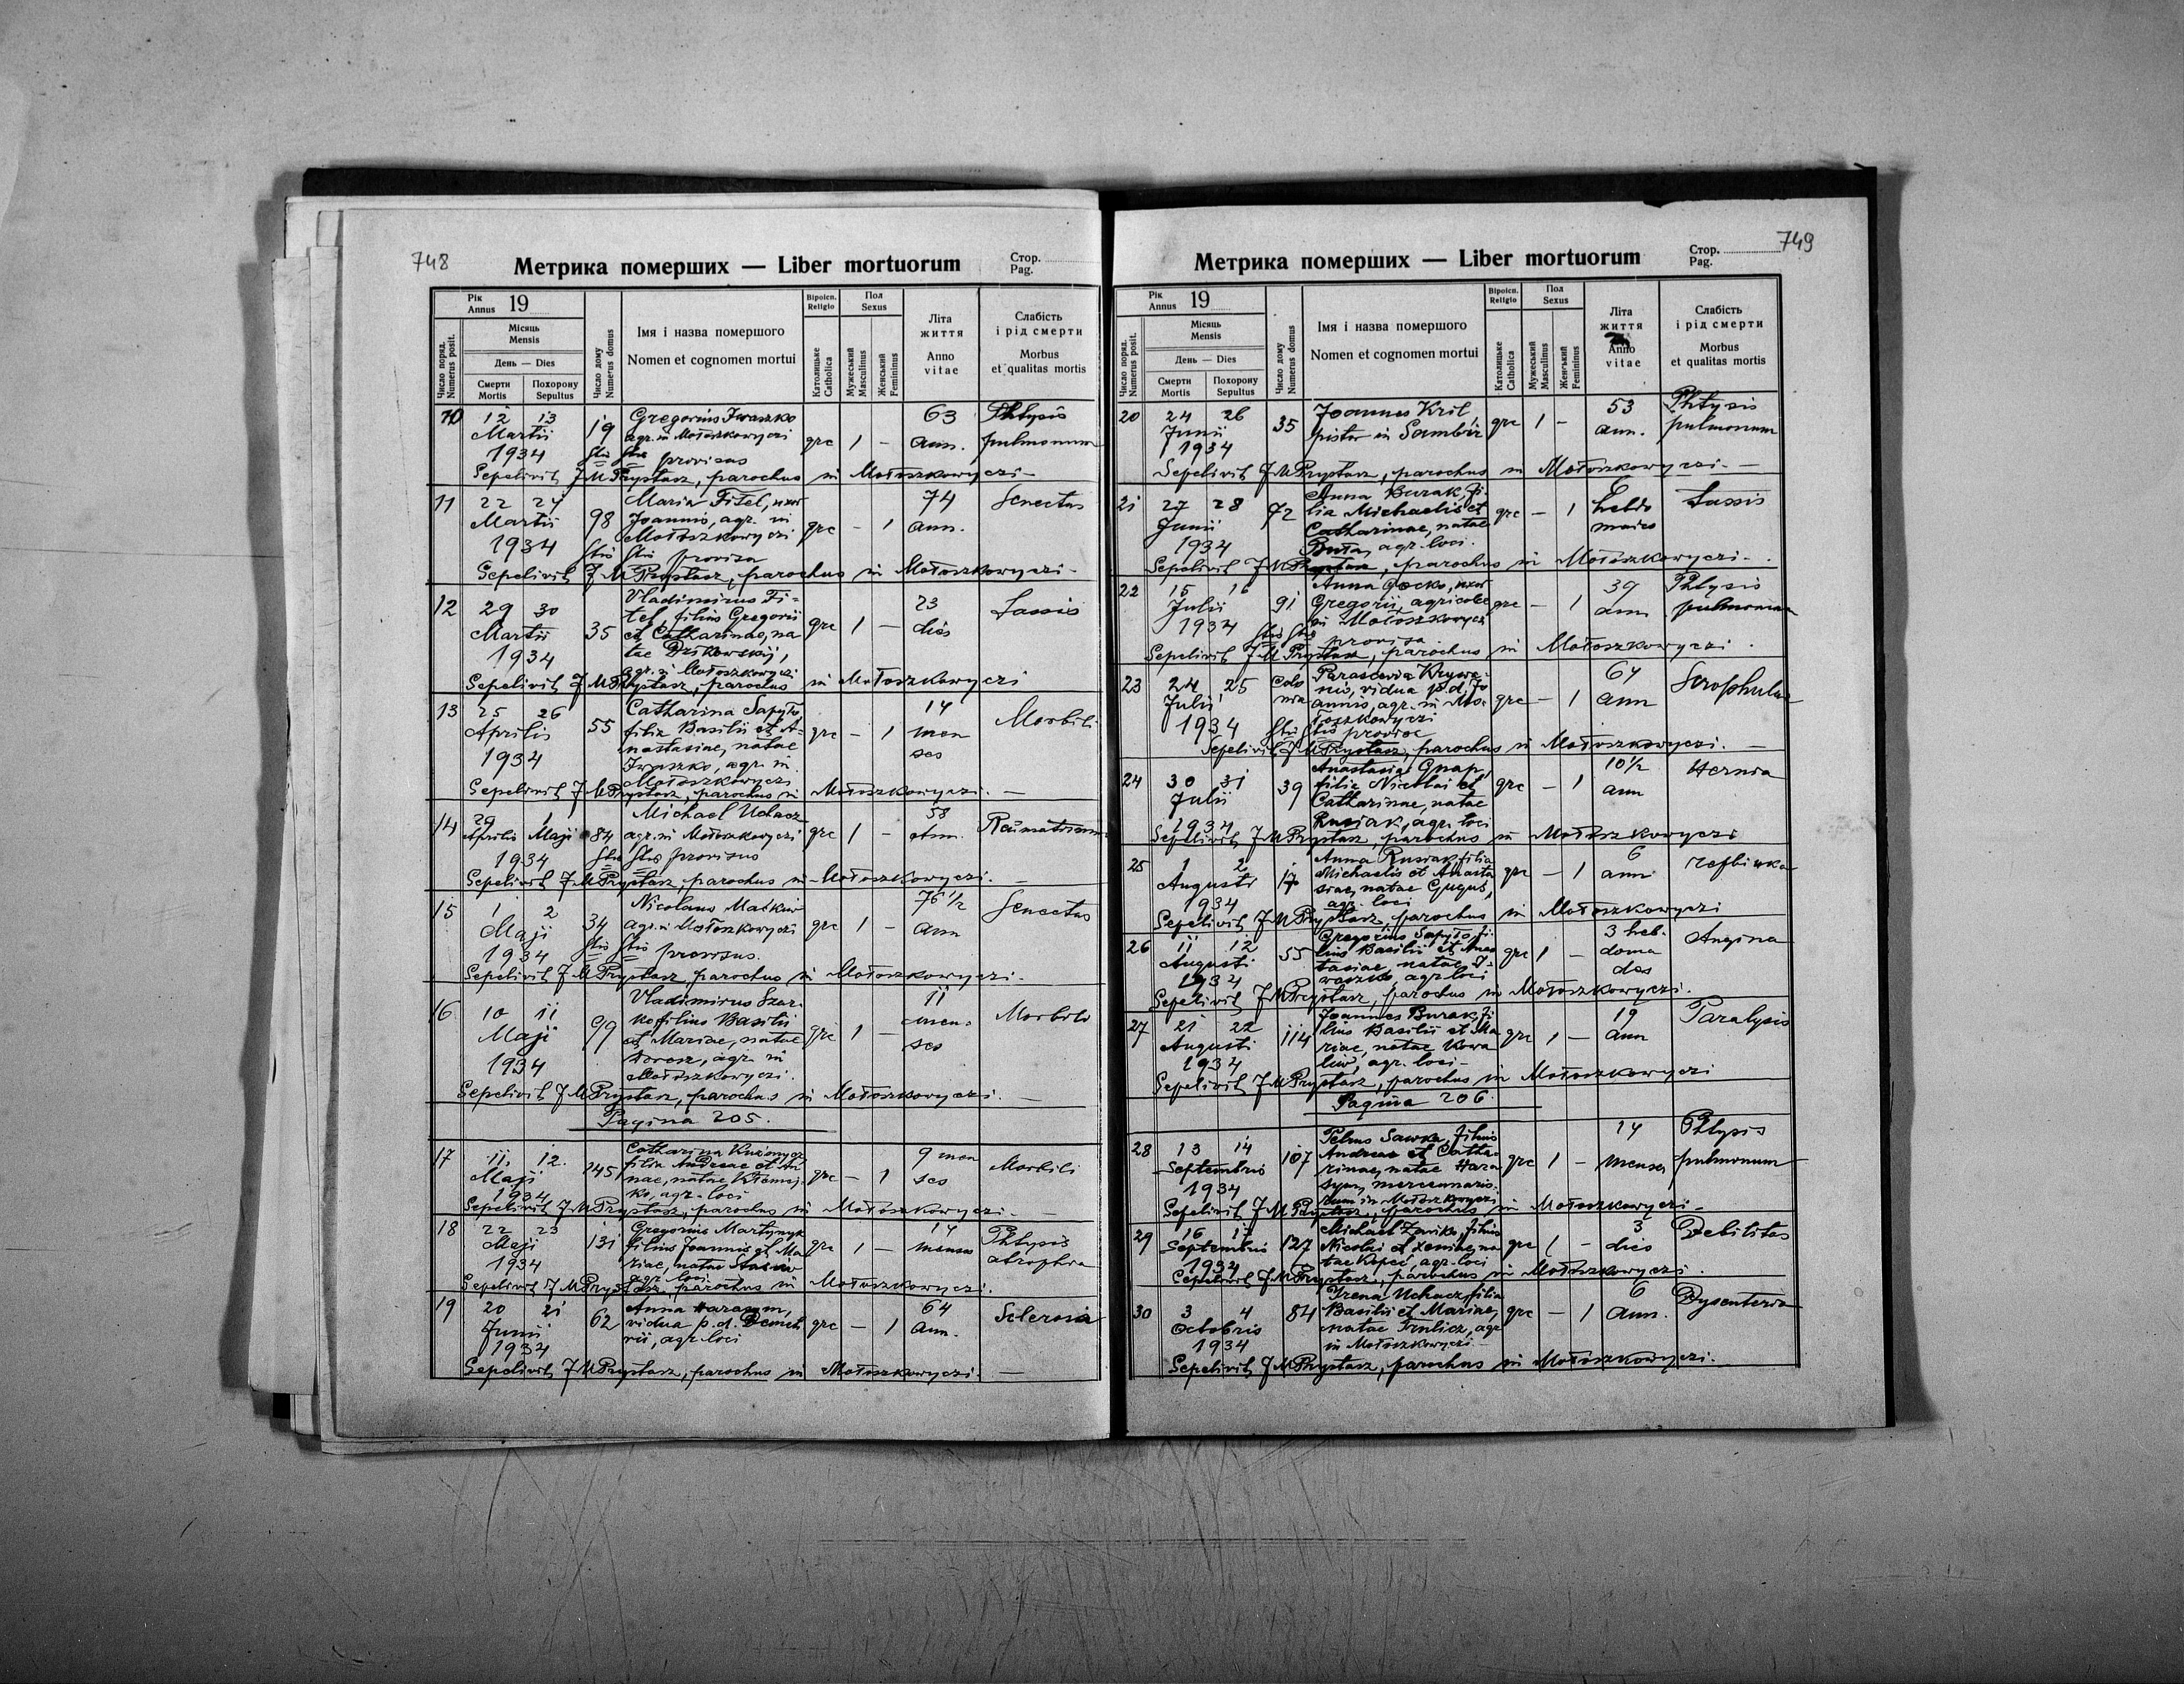 748
Метрика померших — Liber mortuorum
Стор.
Pag.
Рік
Annus 19
Місяць
Mensis
День — Dies
Смерти
Mortis
Похорону
Sepultus
Число поряд.
Numerus posit.
Число дому
Numerus domus
Імя і назва помершого
Nomen et cognomen mortui
Віроісп.
Religio
Католицьке
Catholica
Пол
Sexus
Мужеський
Masculinus
Женський
Femininus
Літа
життя
Anno
vitae
Слабість
і рід смерти
Morbus
et qualitas mortis
10 12 13 Martii 1934 19 Gregorius Iwaszko
agr. in Mołoszkowyczi grc 1 – 63 ann. Phtysis pulmonum
provisus
Sepelivit J M Prystasz, parochus in Mołoszkowyczi –
11 22 24 Martii 1934 98 Maria Fitel, uxor
Joannis, agr. in
Mołoszkowyczi grc – 1 74 ann. Senectus
provisa
Sepelivit J M Prystasz, parochus in Mołoszkowyczi –
12 29 30 Martii 1934 35 Vladimirus Fi-
tel, filius Gregorii
et Catharinae, na
tae Dzikowskij,
agr. in Mołoszkowyczi grc 1 – 23 dies Tassis
Sepelivit J M Prystasz, parochus in Mołoszkowyczi
13 25 26 Aprilis 1934 55 Catharina Sapyto
filia Basilii et A-
nastasiae, natae
Iwaszko, agr. in
Mołoszkowyczi grc – 1 14 men ses Morbili
Sepelivit J M Prystasz, parochus in Mołoszkowyczi. –
14 29 Aprilis 1 Maji 1934 84 Michael Uchacz
agr. in Mołoszkowyczi grc 1 – 58 Ann.
provisus
Sepelivit J M Prystasz, parochus in Mołoszkowyczi. –
15 1 2 Maji 1934 34 Nicolaus Maćkiw
agr. in Mołoszkowyczi grc 1 – 76 1/2 ann Senectus
provisus.
Sepelivit J M Prystasz, parochus in Mołoszkowyczi.
16 10 11 Maji 1934 99 Vladimirus Szar-
ko filius Basilii
et Mariae, natae
agr. in
Mołoszkowyczi. grc 1 – 11 men- ses Morbili
Sepelivit J M Prystasz, parochus in Mołoszkowyczi. –
Pagina 205.
17 11 12. Maji 1934 245 Catharina
filia Andreae et An
nae, natae
agr. loci grc – 1 9 men ses Morbili
Sepelivit J M Prystasz, parochus in Mołoszkowyczi. –
18 22 23 Maji 1934 131 Gregorius Martynyk
filius Joannis et Ma
riae, natae
agr. loci grc 1 – 14 menses Phtysis atrophia
Sepelivit J M Prystasz, parochus in Mołoszkowyczi.
19 20 21 Junii 1934 62 Anna Harasym,
vidua p. d. Demet
rii, agr. loci grc – 1 64 Ann. Sclerosis
Sepelivit J M Prystasz, parochus in Mołoszkowyczi. –
749
Метрика померших — Liber mortuorum
Стор.
Pag.
Рік
Annus 19
Місяць
Mensis
День — Dies
Смерти
Mortis
Похорону
Sepultus
Число поряд.
Numerus posit.
Число дому
Numerus domus
Імя і назва помершого
Nomen et cognomen mortui
Віроісп.
Religio
Католицьке
Catholica
Пол
Sexus
Мужеський
Masculinus
Женський
Femininus
Літа
життя
Anno
vitae
Слабість
і рід смерти
Morbus
et qualitas mortis
20 24 26 Junii 1934 35 Joannes Kril
pistor in Sambir grc 1 – 53 ann. Phtysis pulmonum
Sepelivit J M Prystasz, parochus in Mołoszkowyczi. –
21 27 28 Junii 1934 72 Anna Burak, fi-
lia Michaelis et
Catharinae, natae
agr. loci. grc – 1 Tassis
Sepelivit J M Prystasz, parochus in Mołoszkowyczi.
22 15 16 Julii 1934 91 Anna Gocko, uxor
Gregorii, agricolae
in Mołoszkowyczi grc – 1 39 ann Phtysis pulmonum
provisa
Sepelivit J M Prystasz, parochus in Mołoszkowyczi.
23 24 25 Julii 1934 Colo nia Parascevia Krywa-
nis, vidua p. d. Jo
annis, agr. in Mo-
łoszkowyczi grc – 1 64 ann Scrophulus
Sepelivit J M Prystasz, parochus in Mołoszkowyczi. –
24 30 31 Julii 1934 39 Anastasia Gnap,
filia Nicolai et
Catharinae, natae
Rusiak, agr. loci grc – 1 10 1/2 ann Hernia
Sepelivit J M Prystasz, parochus in Mołoszkowyczi
25 1 2 Augusti 1934 17 Anna Rusiak, filia
Michaelis et Anasta
siae, natae Guguś,
agr. loci grc – 1 6 ann
Sepelivit J M Prystasz, parochus in Mołoszkowyczi
26 11 12 Augusti 1934 55 Gregorius Sapyto, fi
lius Basilii et Anas
tasiae, natae I-
waszko, agr. loci grc 1 – 3 heb- doma des Angina
Sepelivit J M Prystasz, parochus in Mołoszkowyczi.
27 21 22 Augusti 1934 114 Joannes Burak, fi
lius Basilii et Ma
riae, natae Kowa
liw, agr. loci – grc 1 – 19 ann Paralysis
Sepelivit J M Prystasz, parochus in Mołoszkowyczi
Pagina 206.
28 13 14 Septembris 1934 107 Petrus Sawka, filius
Andreae et Catha
rinae, natae Hara
sym, mercenario-
rum in Mołoszkowyczi grc 1 – 14 menses Phtysis pulmonum
Sepelivit J M Prystasz, parochus in Mołoszkowyczi –
29 16 17 Septembris 1934 127 Michael
filius
Nicolai et Xeniae, na
tae Kopeć, agr. loci grc 1 – 3 dies Debilitas
Sepelivit J M Prystasz, parochus in Mołoszkowyczi.
30 3 4 Octobris 1934 84 Irena Uchacz, filia
Basilii et Mariae,
natae agr.
in Mołoszkowyczi. – grc – 1 6 Ann. Dysenteria
Sepelivit J M Prystasz, parochus in Mołoszkowyczi.